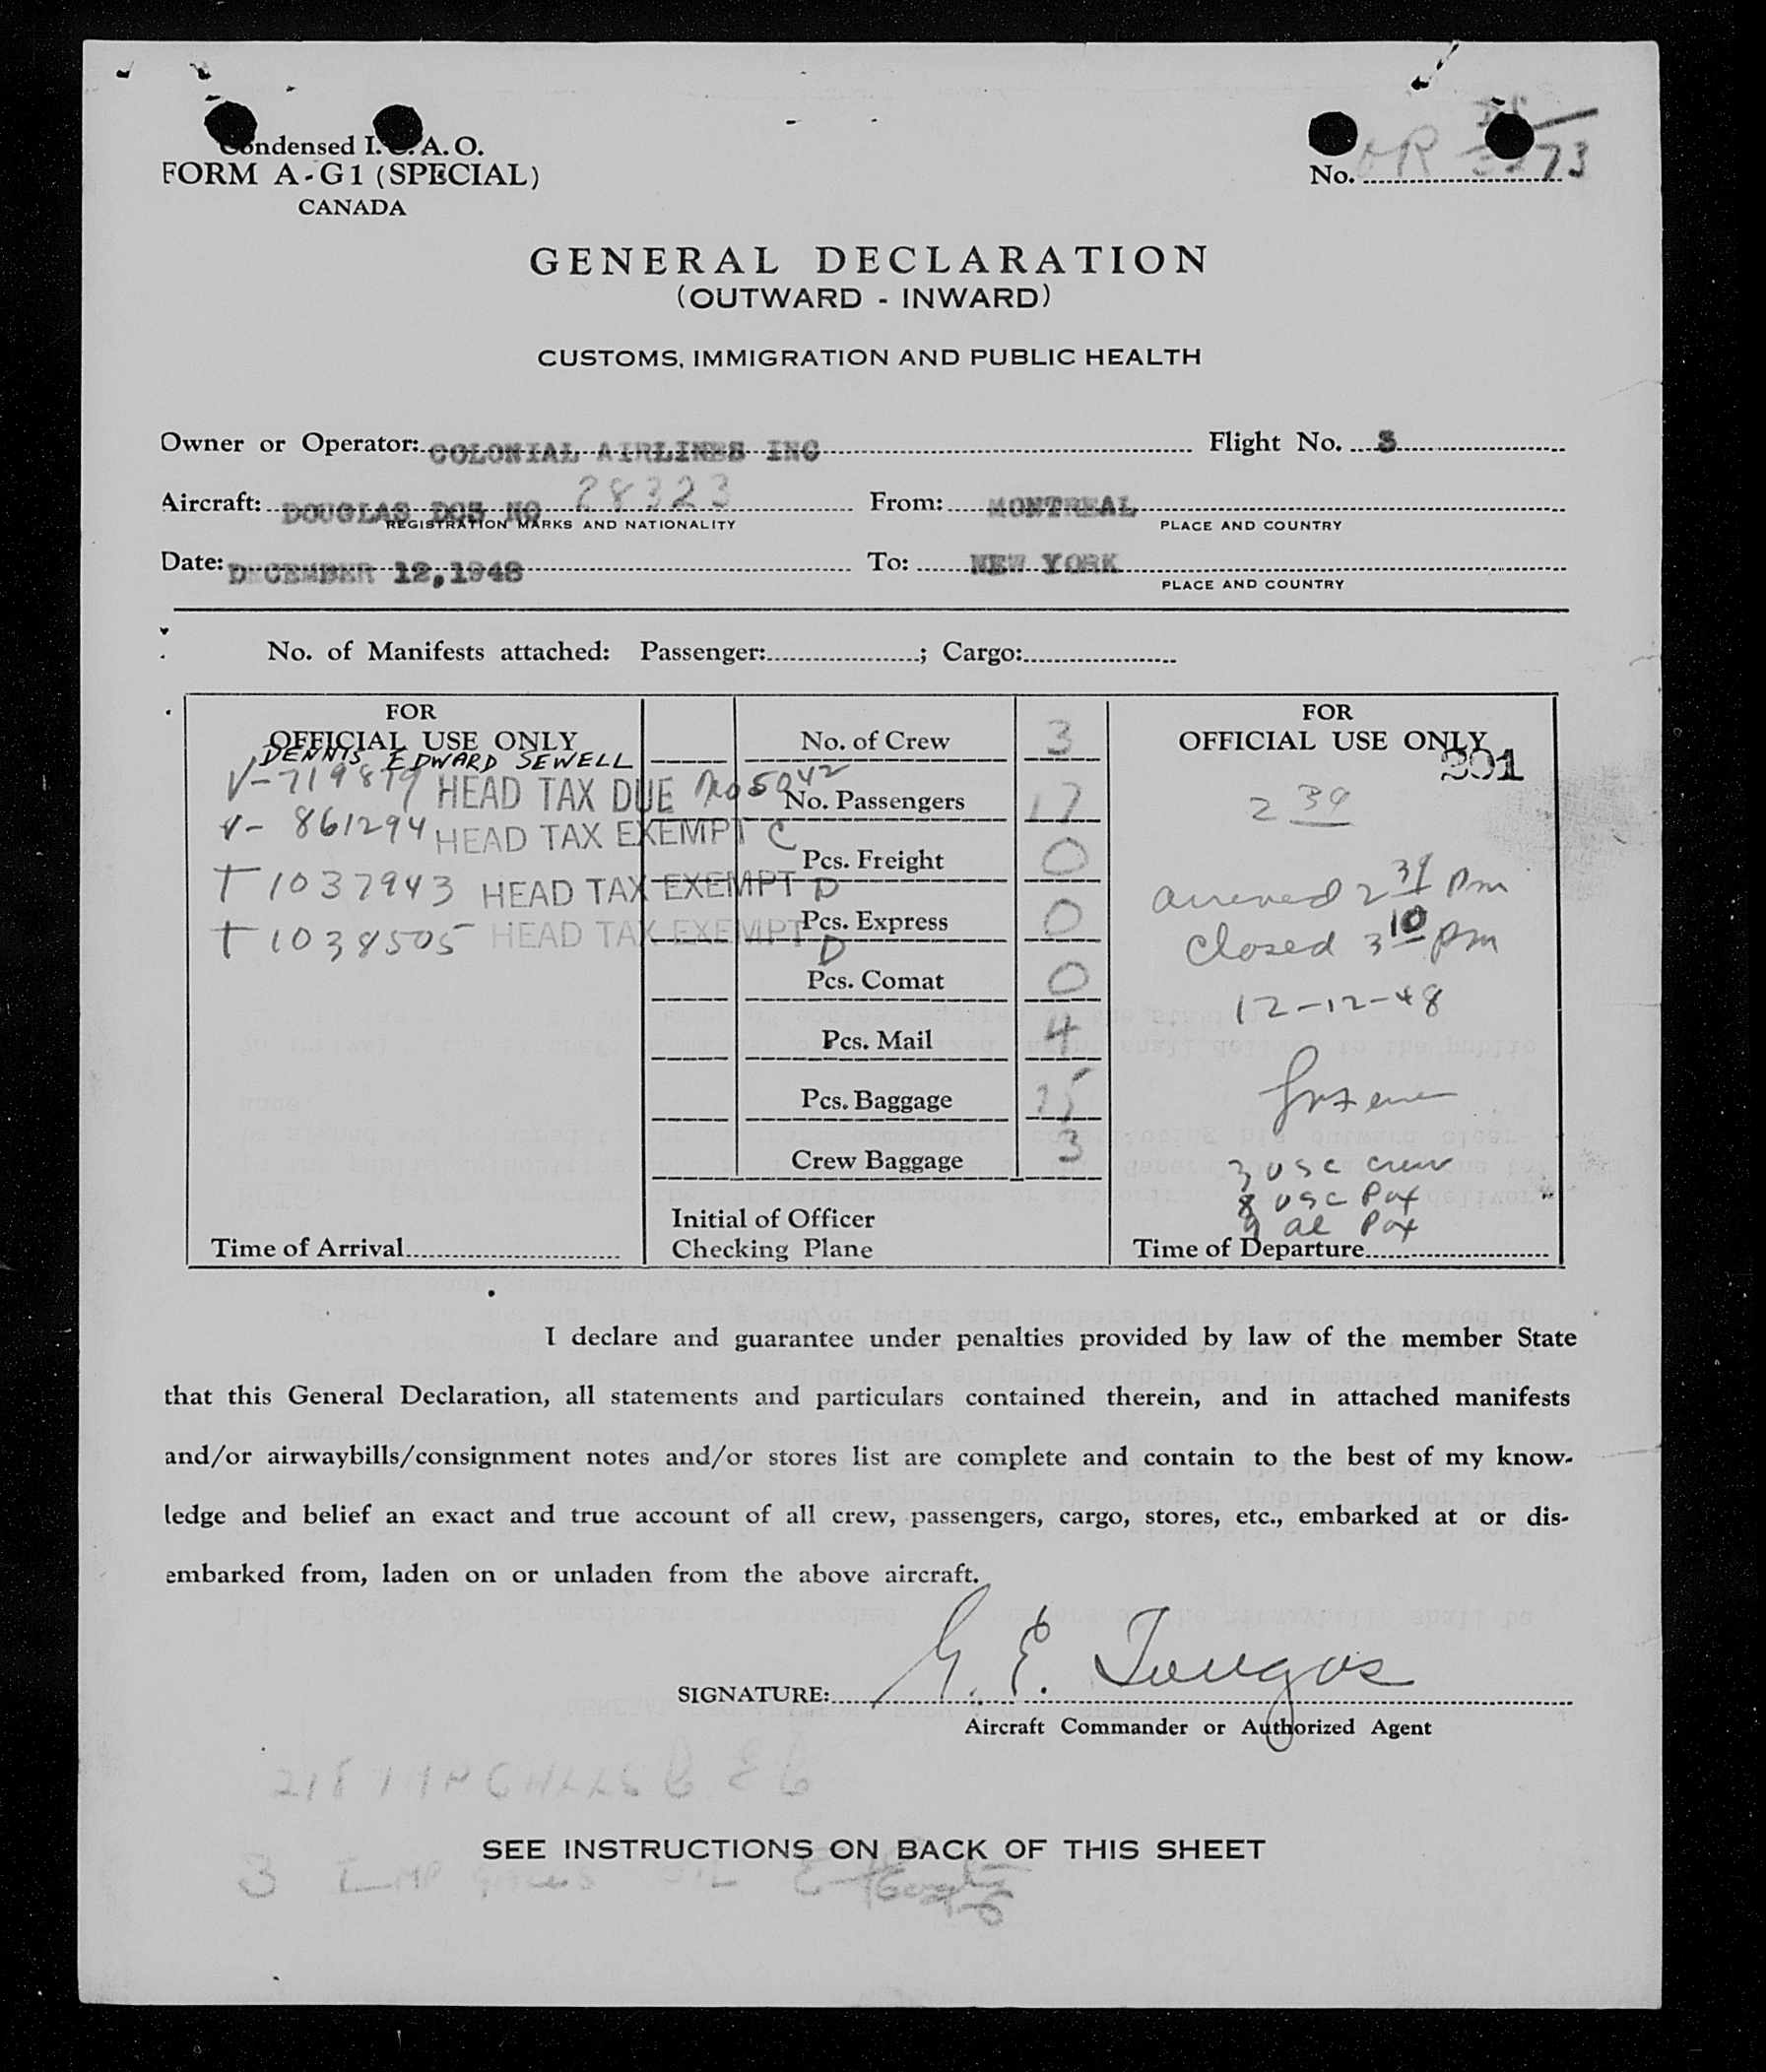 Condensed I.C.A.O.
FORM A-G1 (SPECIAL)
CANADA
No.
GENERAL DECLARATION
(OUTWARD - INWARD)
CUSTOMS, IMMIGRATION AND PUBLIC HEALTH
Owner or Operator: COLONIAL AIRLINES INC Flight No.
Aircraft: DOUGLAS DC3 NO 28323 From: MONTREAL
REGISTRATION MARKS AND NATIONALITY PLACE AND COUNTRY
Date: DECEMBER 12,1948 To: NEW YORK
PLACE AND COUNTRY
No. of Manifests attached: Passenger: ; Cargo:
FOR
OFFICIAL USE ONLY
DENNIS EDWARD SEWELL
V-719879 HEAD TAX DUE No 5042
V- 861294 HEAD TAX EXEMPT C
T 1037943 HEAD TAX EXEMPT D
T 1038505 HEAD TAX EXEMPT D
Time of Arrival
No. of Crew 3
No. Passengers 17
Pcs. Freight 0
Pcs. Express 0
Pcs. Comat 0
Pcs. Mail 4
Pcs. Baggage
Crew Baggage 3
Initial of Officer
Checking Plane
FOR
OFFICIAL USE ONLY
2 39
arrived 2 39 pm
Closed 3 10 pm
12-12-48
3 USC crew
8 USC Pax
9 al Pax
Time of Departure
I declare and guarantee under penalties provided by law of the member State
that this General Declaration, all statements and particulars contained therein, and in attached manifests
and/or airwaybills/consignment notes and/or stores list are complete and contain to the best of my know-
ledge and belief an exact and true account of all crew, passengers, cargo, stores, etc., embarked at or dis-
embarked from, laden on or unladen from the above aircraft.
SIGNATURE: G. E.
Aircraft Commander or Authorized Agent
SEE INSTRUCTIONS ON BACK OF THIS SHEET